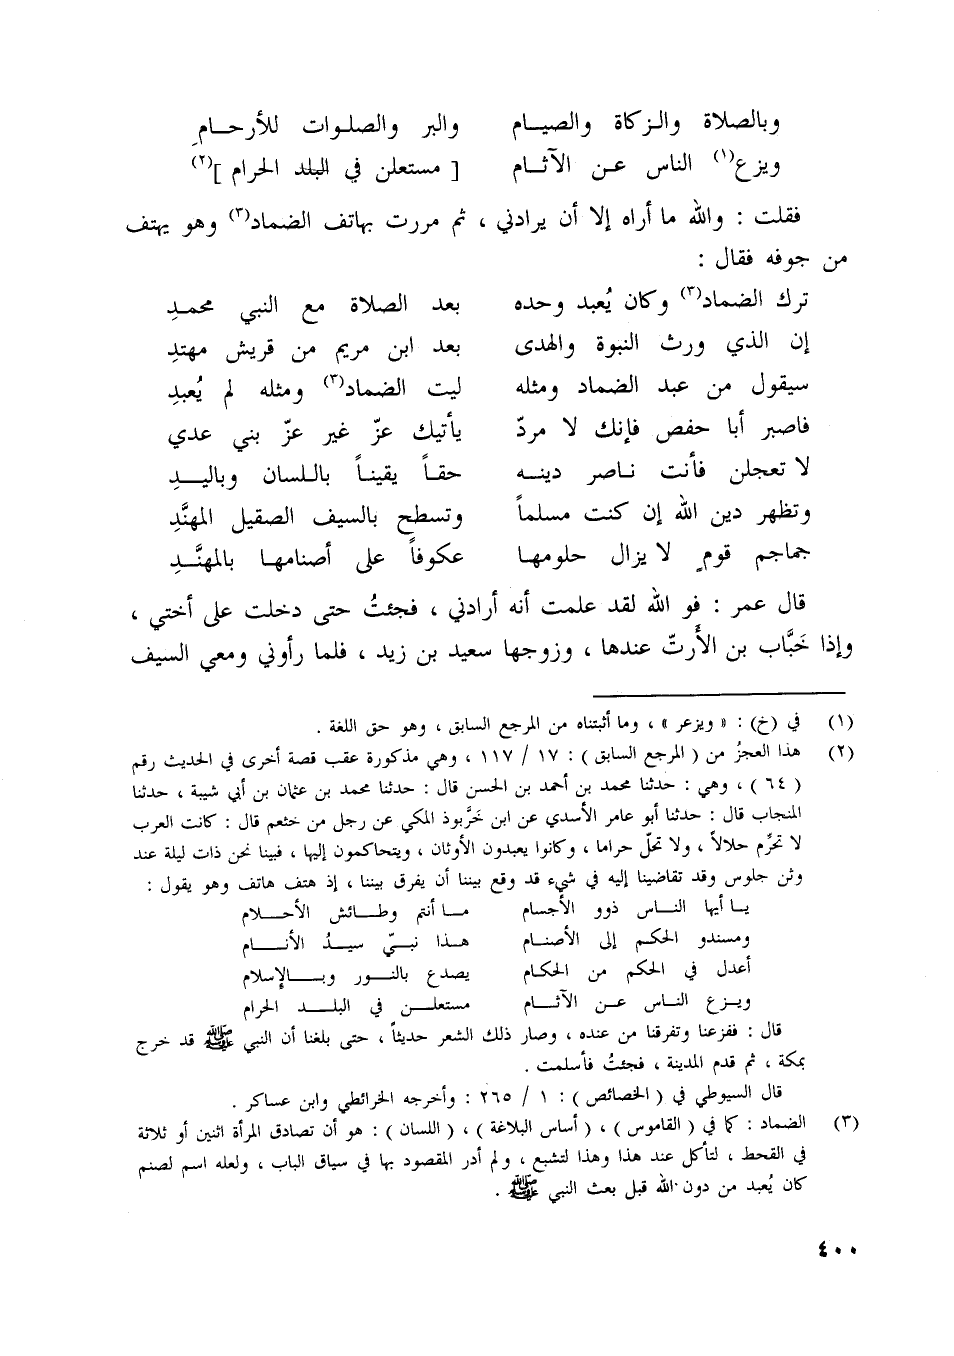 وبالصلاة والـزكاة والصيـام والبر والصلـوات للأرحـامِ
ويزع(١) الناس عـن الآثـام [ مستعلن في البلد الحرام ](٢)
فقلت : والله ما أراه إلا أن يرادني ، ثم مررت بهاتف الضماد(٣) وهو يهتف
من جوفه فقال :
ترك الضماد(٣) وكان يُعبد وحده بعد الصلاة مع النبي محمـدِ
إن الذي ورث النبوة والهدى بعد ابن مريم من قريش مهتدِ
سيقول من عبد الضماد ومثله ليت الضماد(٣) ومثله لم يُعبدِ
فاصبر أبا حفص فإنك لا مردّ يأتيك عزّ غير عزّ بني عدي
لا تعجلن فأنت نـاصر دينـه حقـاً يقينـاً باللسان وباليـدِ
وتظهر دين الله إن كنت مسلماً وتسطح بالسيف الصقيل المهنَّدِ
جماجم قومٍ لا يزال حلومهـا عكوفاً على أصنامهـا بالمهنَّـدِ
قال عمر : فو الله لقد علمت أنه أرادني ، فجئتُ حتى دخلت على أختي ،
وإذا خَبَّاب بن الأَرتّ عندها ، وزوجها سعيد بن زيد ، فلما رأوني ومعي السيف
(١) في (خ) : « ويزعر » ، وما أثبتناه من المرجع السابق ، وهو حق اللغة .
(٢) هذا العجزُ من ( المرجع السابق ) : ١٧ / ١١٧ ، وهي مذكورة عقب قصة أخرى في الحديث رقم
( ٦٤ ) ، وهي : حدثنا محمد بن أحمد بن الحسن قال : حدثنا محمد بن عثمان بن أبي شيبة ، حدثنا
المنجاب قال : حدثنا أبو عامر الأسدي عن ابن خَرَّبوذ المكي عن رجل من خثعم قال : كانت العرب
لا تحرِّم حلالاً ، ولا تحلّ حراما ، وكانوا يعبدون الأوثان ، ويتحاكمون إليها ، فبينا نحن ذات ليلة عند
وثن جلوس وقد تقاضينا إليه في شيء قد وقع بيننا أن يفرق بيننا ، إذ هتف هاتف وهو يقول :
يـا أيها النـاس ذوو الأجسام مـا أنتم وطـائش الأحـلام
ومسندو الحكـم إلى الأصنـام هـذا نبـيّ سيـدُ الأنـام
أعدل في الحكم من الحكام يصدع بالنـور وبـالإسلام
ويـزع النـاس عـن الآثـام مستعلـن في البلـد الحرام
قال : ففزعنا وتفرقنا من عنده ، وصار ذلك الشعر حديثاً ، حتى بلغنا أن النبي ﷺ قد خرج
بمكة ، ثم قدم المدينة ، فجئتُ فأسلمت .
قال السيوطي في ( الخصائص ) : ١ / ٢٦٥ : وأخرجه الخرائطي وابن عساكر .
(٣) الضماد : كما في ( القاموس ) ، ( أساس البلاغة ) ، ( اللسان ) : هو أن تصادق المرأة اثنين أو ثلاثة
في القحط ، لتأكل عند هذا وهذا لتشبع ، ولم أدر المقصود بها في سياق الباب ، ولعله اسم لصنم
كان يُعبد من دون الله قبل بعث النبي ﷺ .
٤٠٠